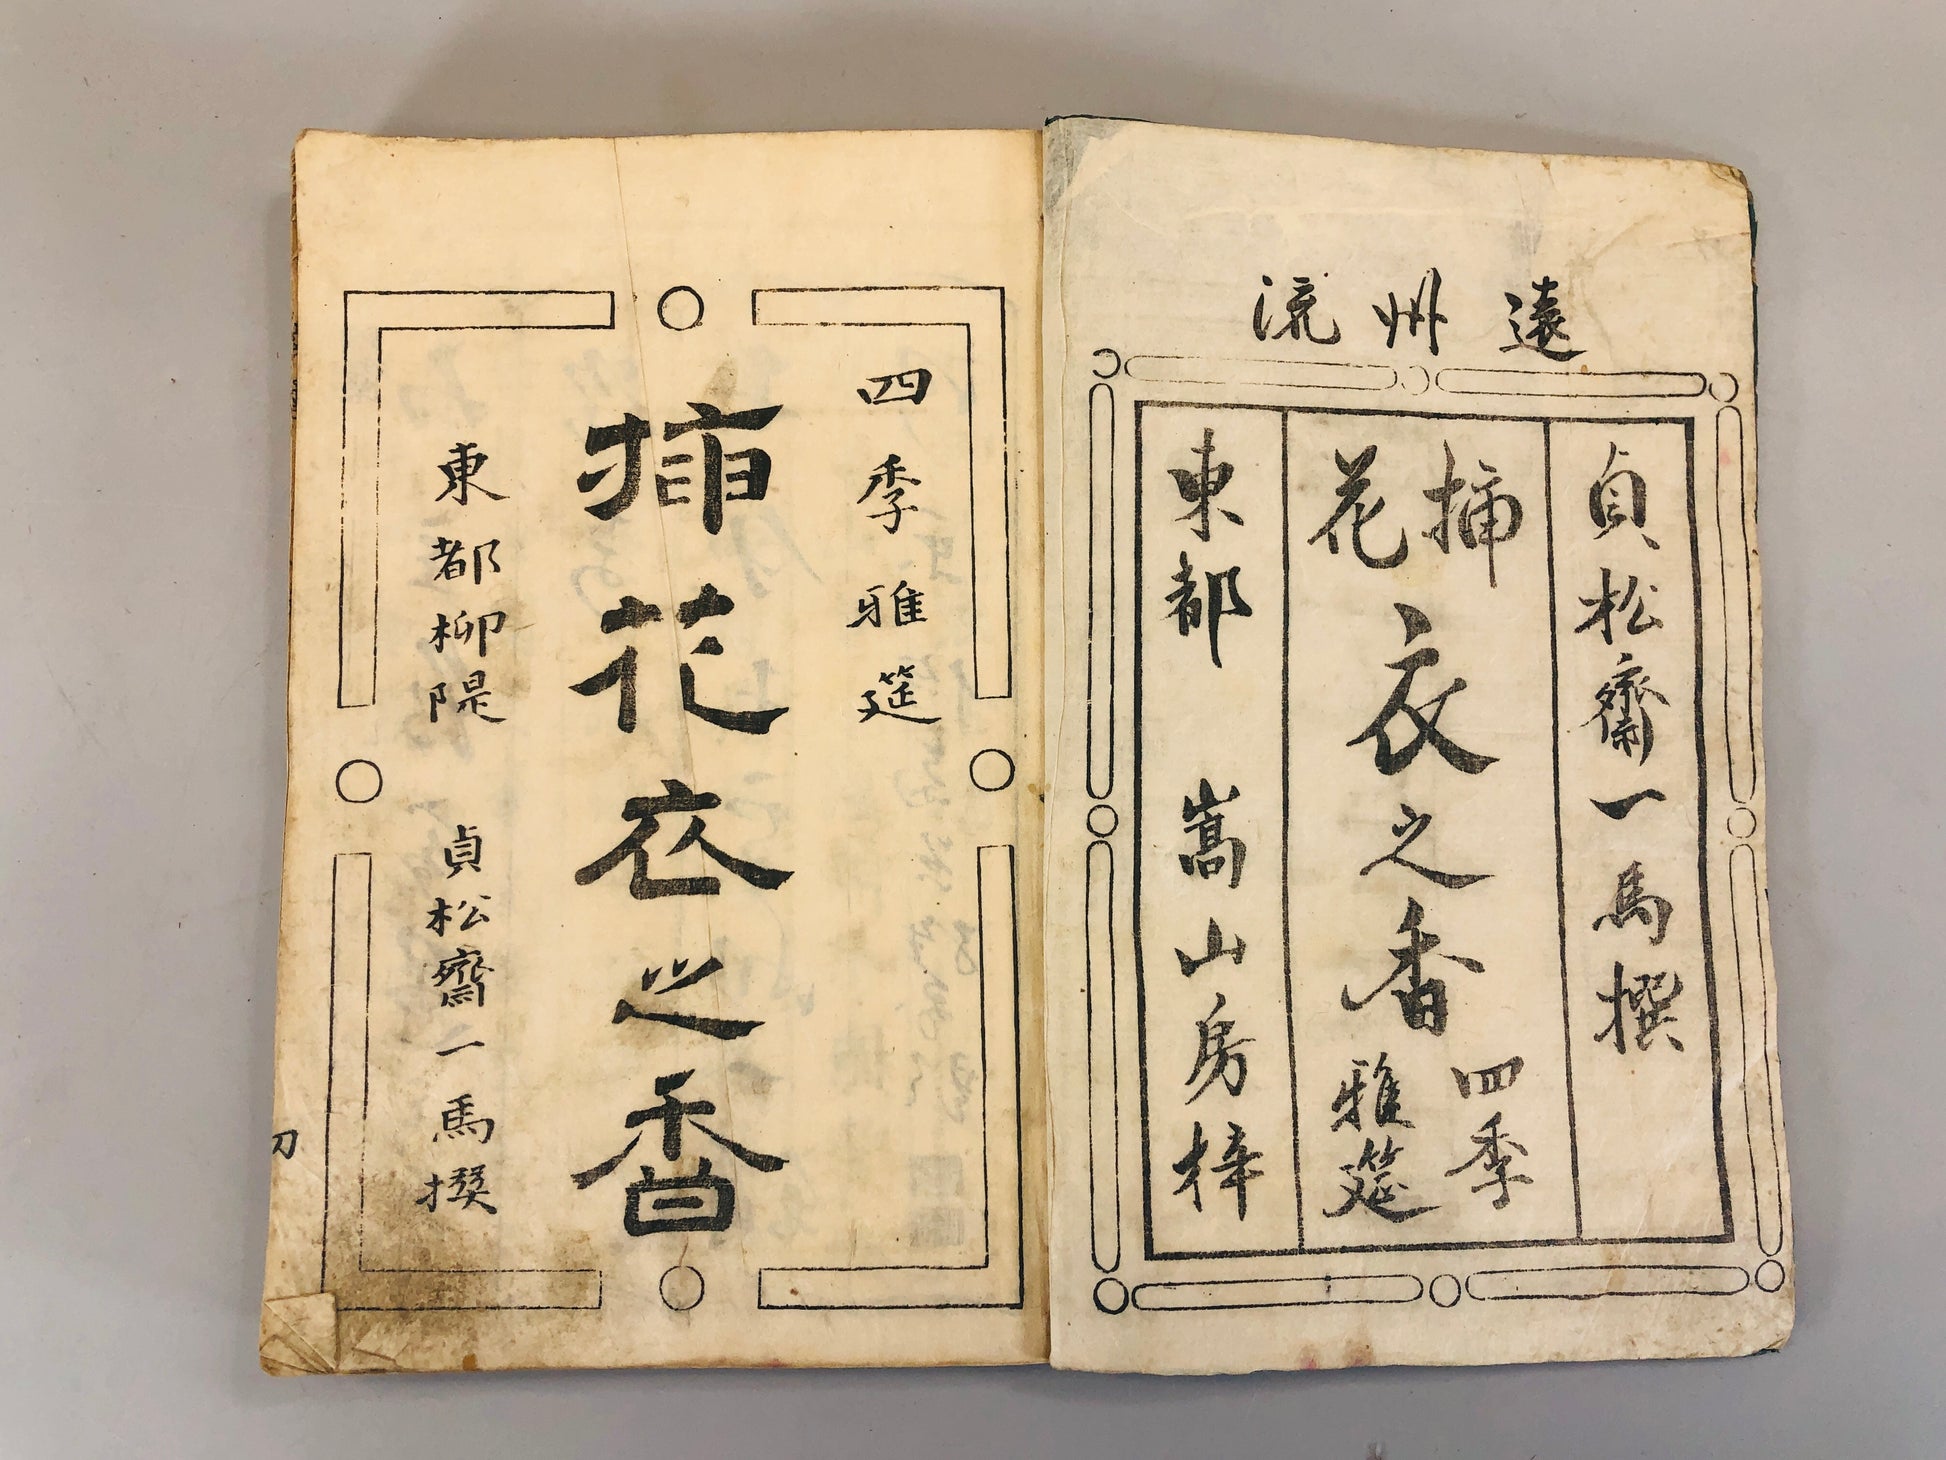 遠州流
貞松齋一馬撰
挿花衣之香四季雅筵
東都 嵩山房梓
四季雅筵
挿花衣之香
東都柳隄 貞松齋一馬撰